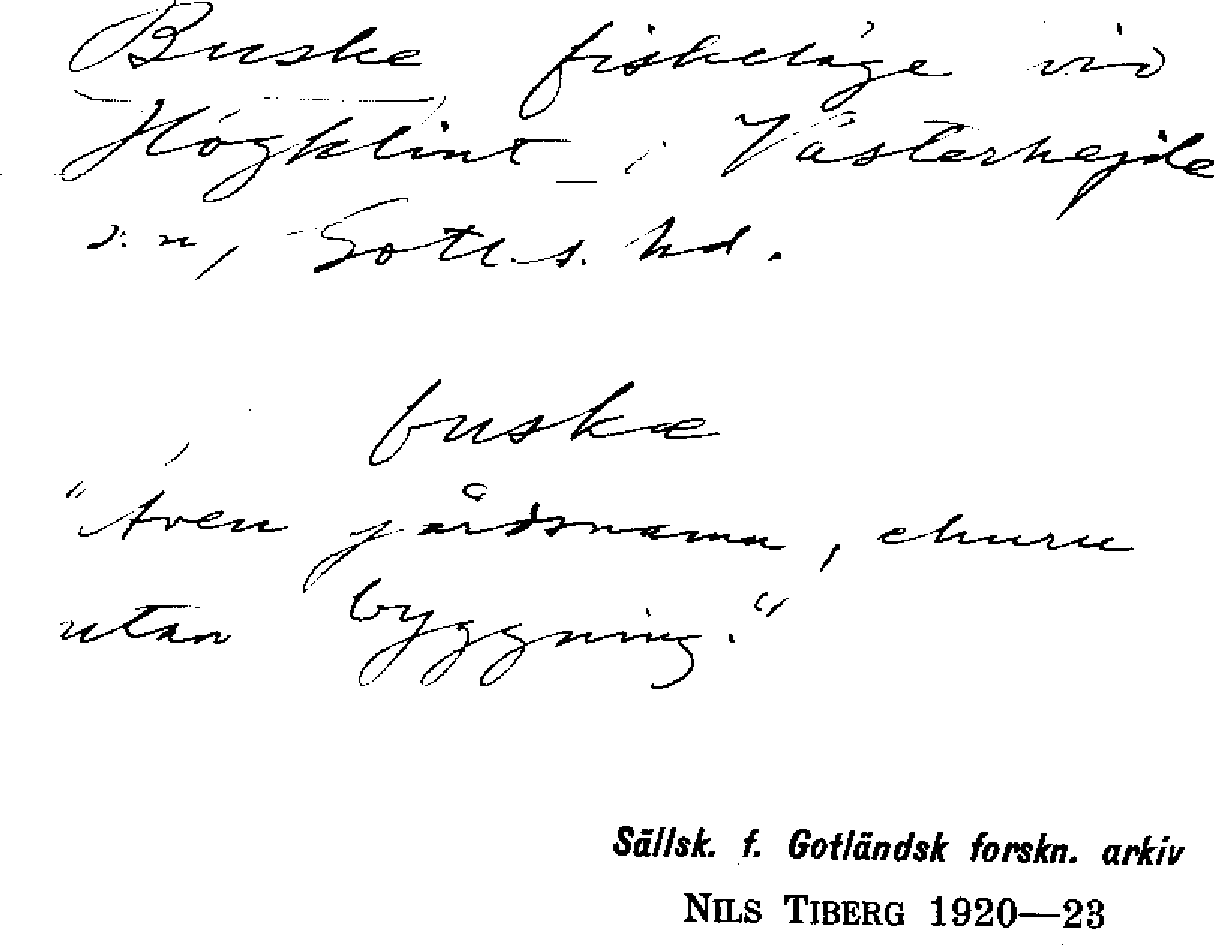 Buske fiskeläge vid
Högklint i Västerhejde
s:n, Gotl. s. hd.
buskæ
"Även gårdsnamn, ehuru
utan byggning."
Sällsk. f. Gotländsk forskn. arkiv
NILS TIBERG 1920—23